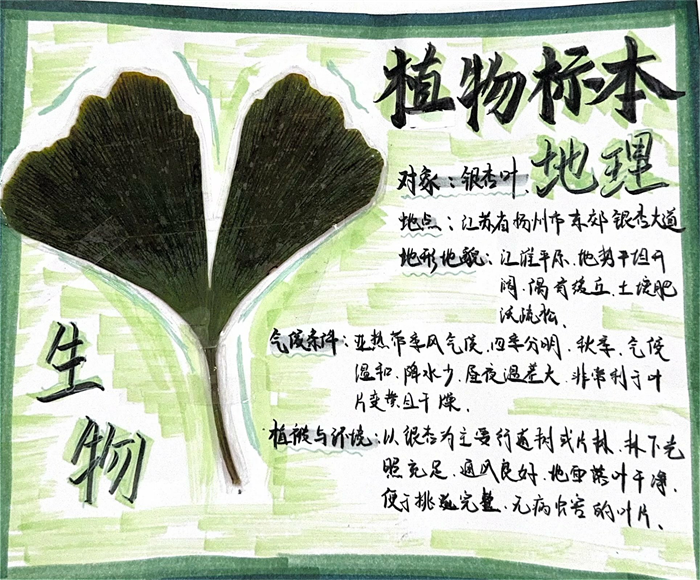 植物标本
地理
对象：银杏叶
地点：江苏省扬州市东郊银杏大道
地形地貌：江淮平原、地势平坦开
阔、偶有缓丘、土壤肥
沃疏松、
气候条件：亚热带季风气候、四季分明、秋季、气候
温和、降水少、昼夜温差大、非常利于叶
片变黄且干燥、
植被与环境：以银杏为主要行道树或片林、林下光
照充足、通风良好、地面落叶干净、
便于挑选完整、无病虫害的叶片、
生
物